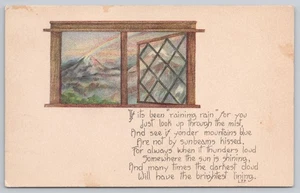 If its been "raining rain" for you
Just look up through the mist,
And see if yonder mountains blue
Are not by sunbeams kissed.
For always when it thunders loud
Somewhere the sun is shining,
And many times the darkest cloud
Will have the brightest lining.